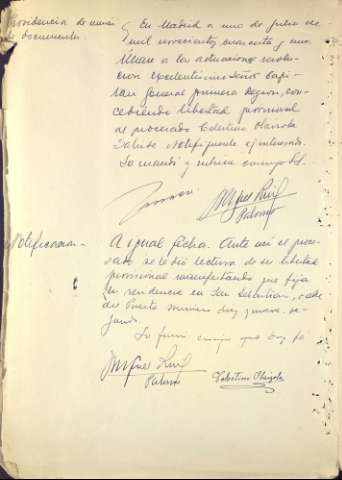 Providencia de unión
de documentos.
En Madrid a uno de Julio de
mil novecientos cuarenta y uno
Únase a las actuaciones resolu-
cion excelentísimo Señor Capi-
tan General primera Region, con-
cediendo libertad provisional
al procesado Celestino
Notifíquese al interesado.
Lo mandó y rubrica conmigo
Miguel Ruiz
Palomo
Notificacion.-
A igual fecha. Ante mi el proce-
sado se le dio lectura de su libertad
provisional manifestando que fija
su residencia en San Sebastian, calle
del Puerto numero diez y nueve, se-
gundo.
Lo firma conmigo que doy fe
Miguel Ruiz
Palomo
Celestino